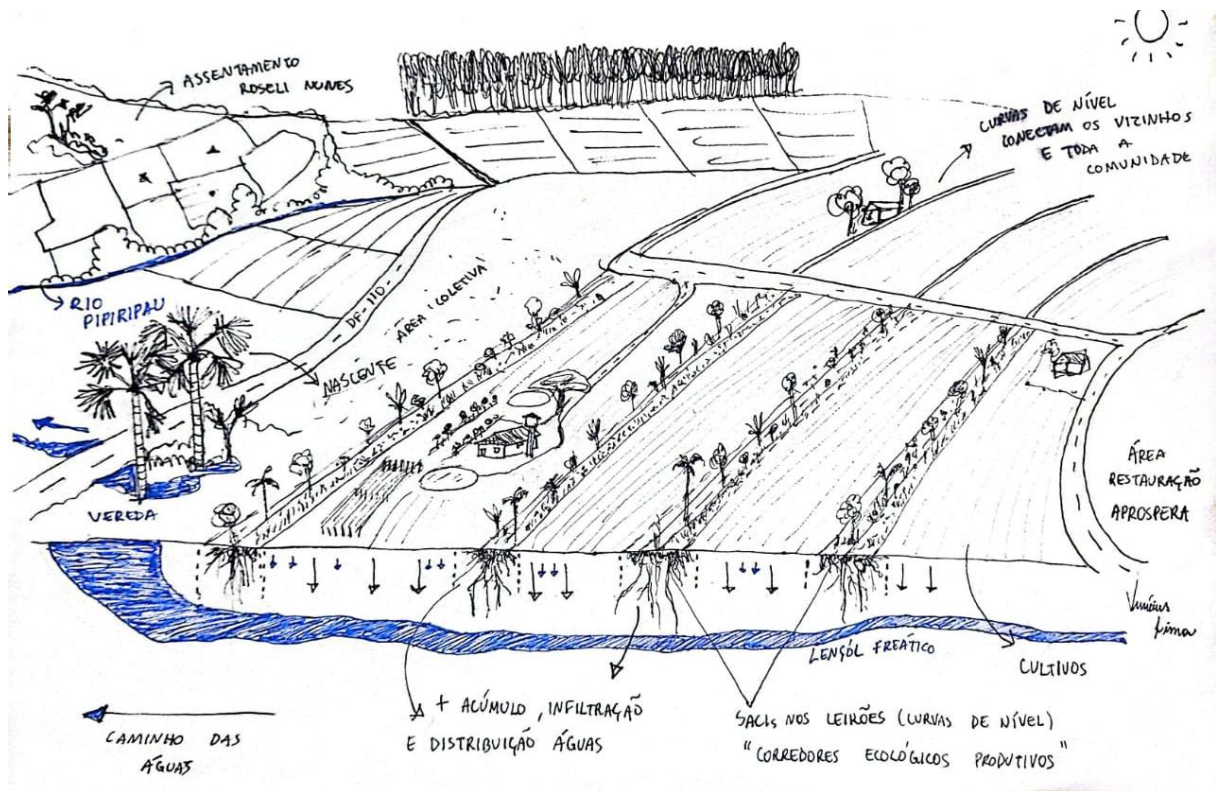 ASSENTAMENTO
ROSELI NUNES
CURVAS DE NÍVEL
CONECTAM OS VIZINHOS
E TODA A
COMUNIDADE
RIO
PIPIRIPAU
DF-110-
ÁREA COLETIVA
NASCENTE
VEREDA
ÁREA
RESTAURAÇÃO
APROSPERA
Vinícius
Lima
LENÇÓL FREÁTICO
CULTIVOS
CAMINHO DAS
ÁGUAS
+ ACÚMULO, INFILTRAÇÃO
E DISTRIBUIÇÃO ÁGUAS
SACIS NOS LEIRÕES (CURVAS DE NÍVEL)
"CORREDORES ECOLÓGICOS PRODUTIVOS"